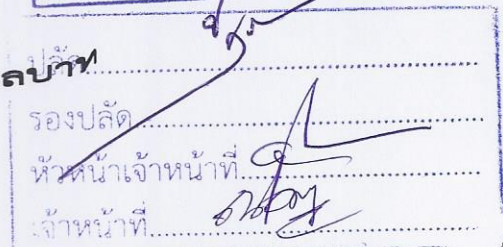 ปลัด
ลบาท
รองปลัด
หัวหน้าเจ้าหน้าที่
เจ้าหน้าที่